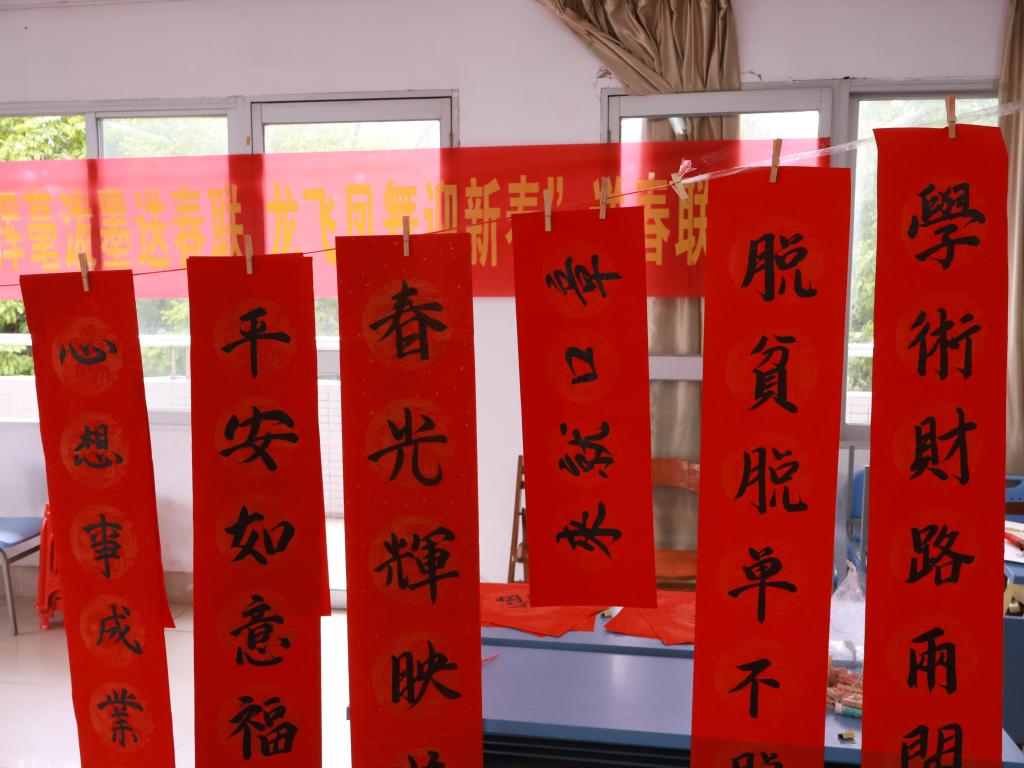 挥毫泼墨送春联 龙飞凤舞迎新春” 春联
心想事成業
平安如意福
春光輝映
章口就来
脱貧脱单不
學術財路兩